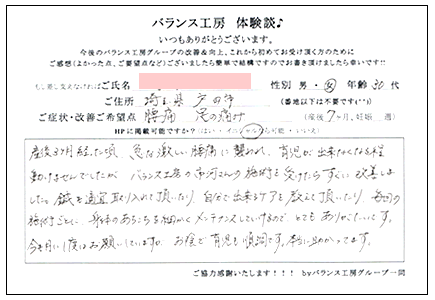 バランス工房 体験談♪
いつもありがとうございます。
今後のバランス工房グループの改善&向上、これから初めてお受け頂く方のために
ご感想(よかった点、ご要望点など)ございましたら簡単で結構ですのでお書き頂けましたら幸いです!!
もし差し支えなければご氏名 性別 男・女 年齢 30代
ご住所 埼玉県 戸田市 (番地以下は不要です(^^))
ご症状・改善ご希望点 腰痛 足の痛み (産後7ヶ月、妊娠 週)
HPに掲載可能ですか?(はい・イニシャルなら可能・いいえ)
産後3ヶ月経った頃、急な激しい腰痛に襲われ、育児が出来なくなる程
動けませんでしたが、バランス工房の市河さんの施術を受けたらすぐに改善しま
した。鍼を適宜取り入れて頂いたり、自分で出来るケアを教えて頂いたり、毎回の
施術ごとに、身体のあちこちを細かくメンテナンスしていけるので、とてもありがたいです。
今も月に1度はお願いしていますが、お陰で育児も順調です。本当に助かってます。
ご協力感謝いたします!!! byバランス工房グループ一同